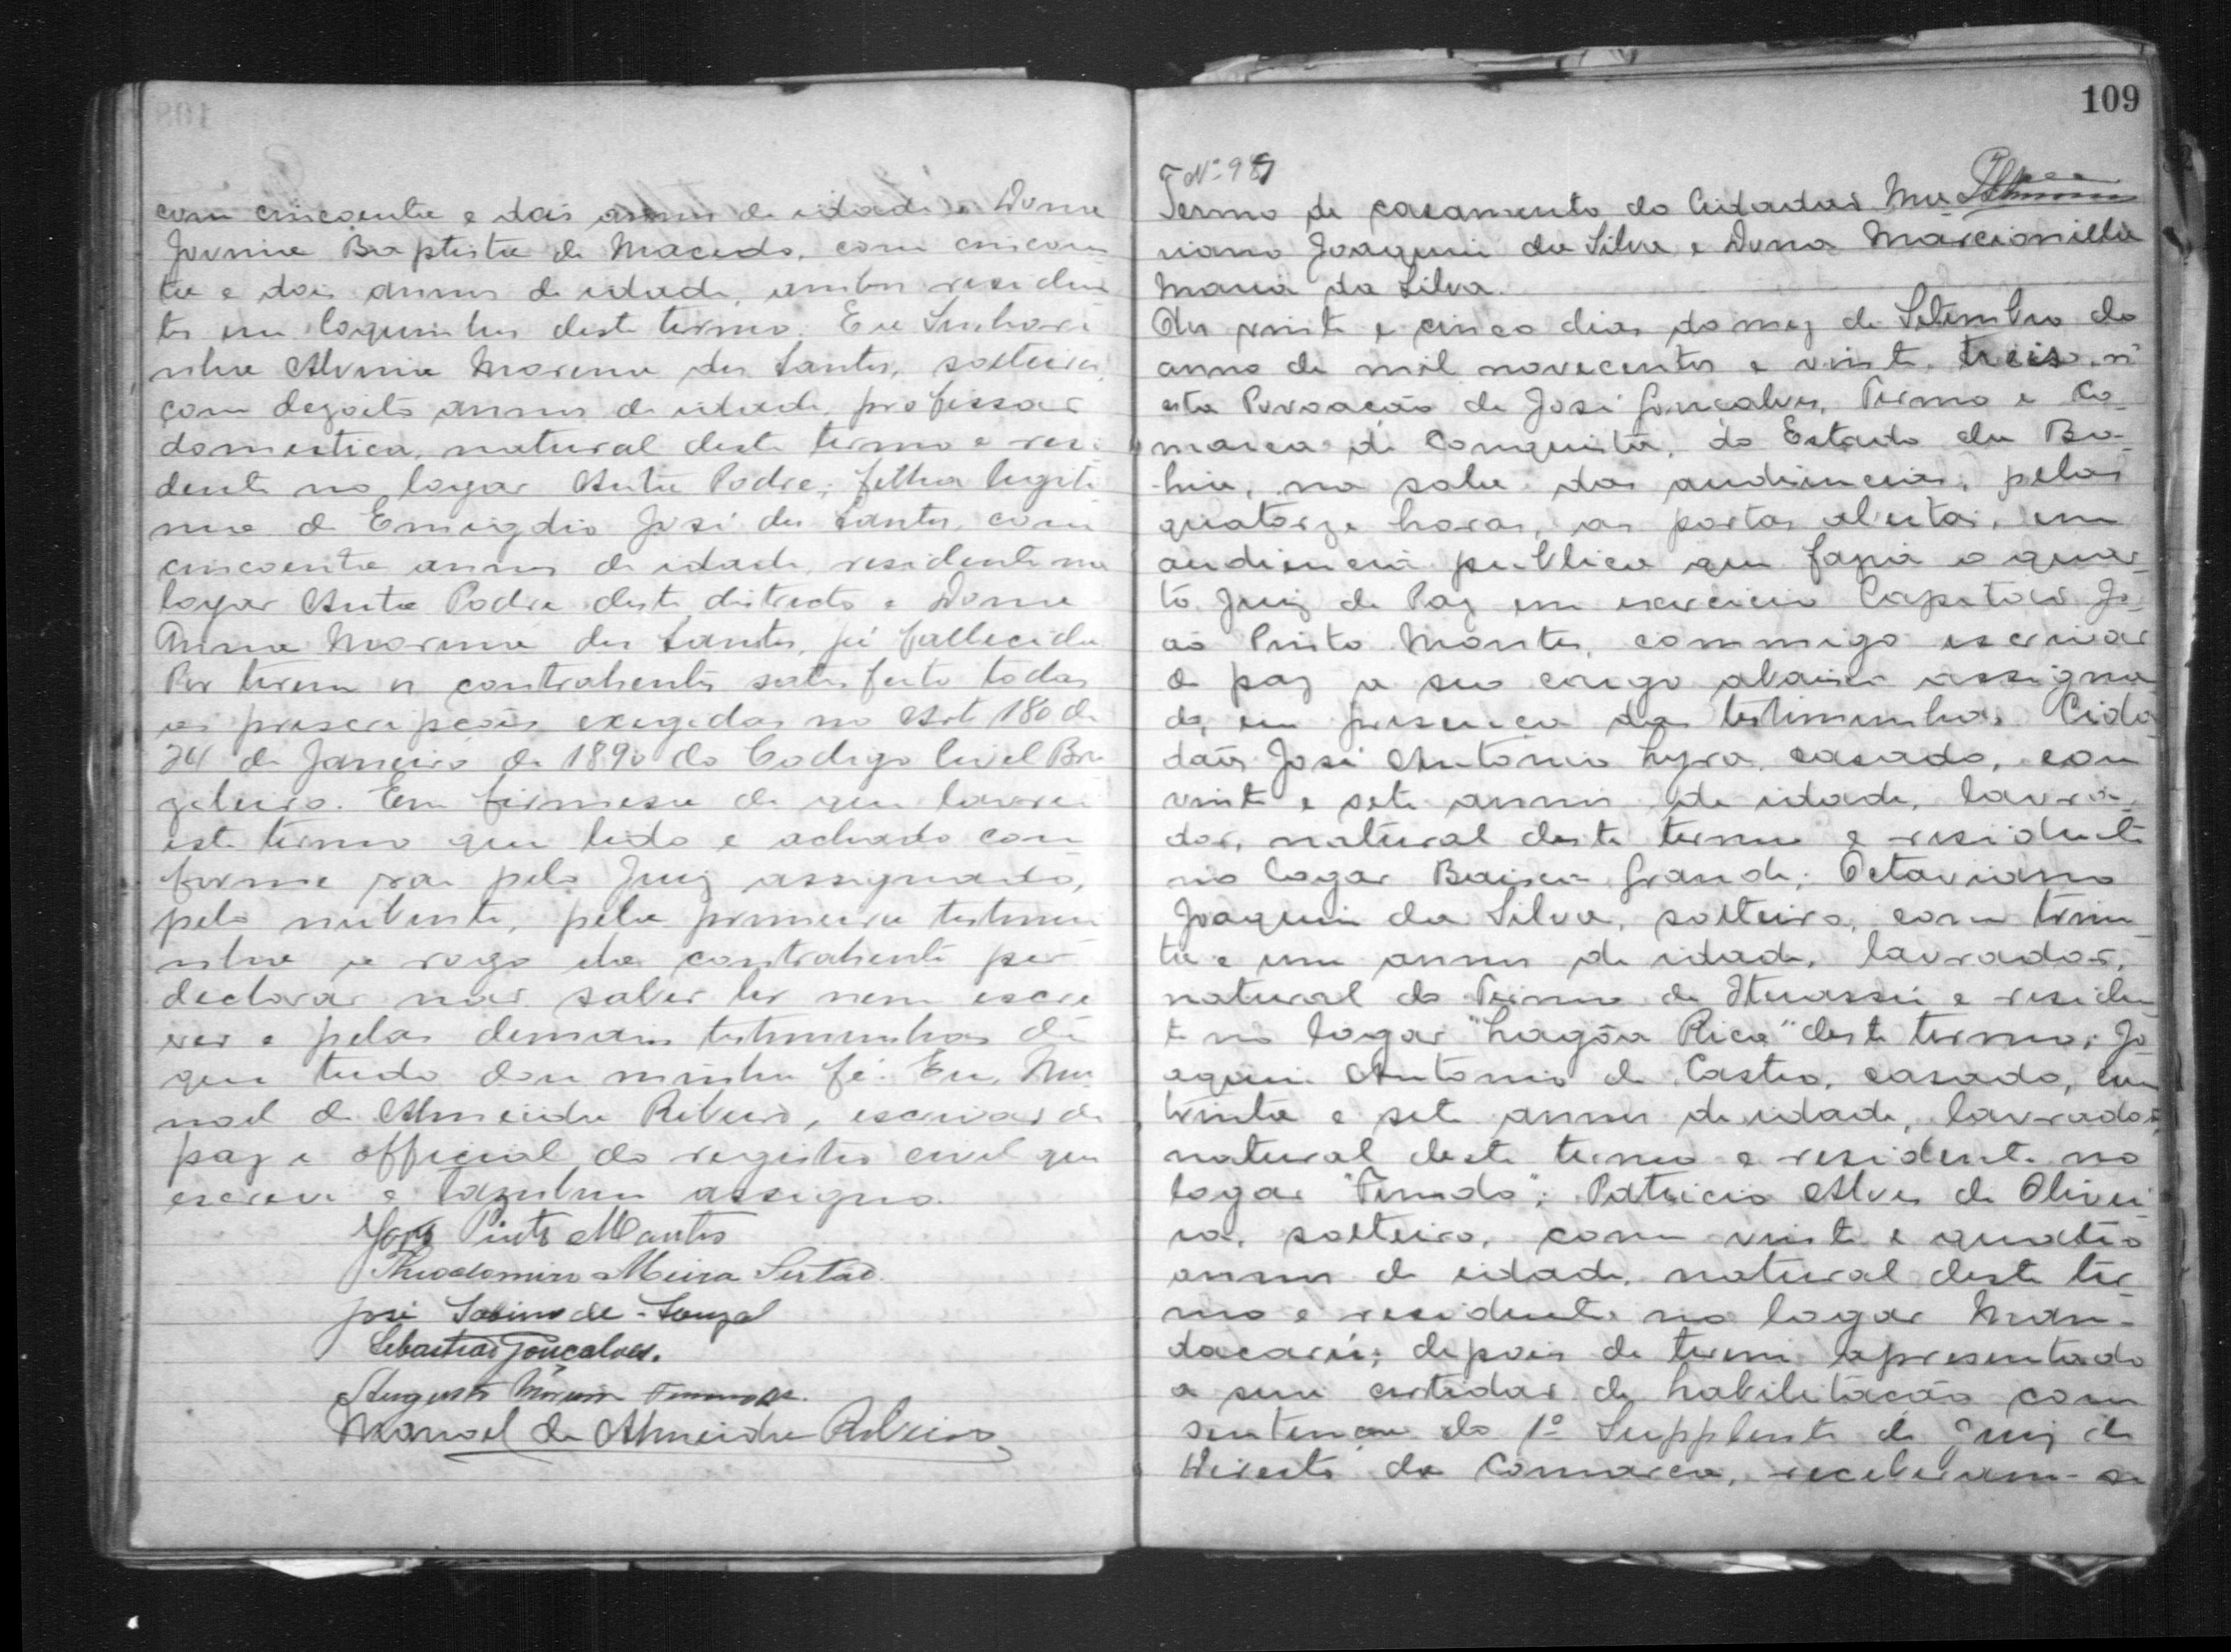 com cincoenta e dois annos de idade e Dona
Jovina Baptista de Macedo, com cincoen
ta e dois annos de idade, ambos residen
tes em deste termo. Eu Senhori
nha Alvina Morena dos Santos, solteira,
com dezoito annos de idade, profissão
domestica, natural deste termo e resi
dente no logar Anta Podre; filha legiti
ma de Emigdio José dos Santos, com
cincoenta annos de idade, residente no
logar Anta Podre deste districto e Dona
Anna Morena dos Santos, já fallecida
Por terem os contrahentes satisfeito todas
as prescripções exegidas no Art 180 de
24 de Janeiro de 1890 do Codigo Civel Bra
zileiro. Em firmesa de que lavrei
este termo que lido e achado con
forme vai pelo Juiz assignado,
pelo nubente, pela primeira testemu
nha a rogo da contrahente por
declarar não saber ler nem escre
ver e pelas demais testemunhas do
que tudo dou minha fé. Eu, Ma
noel de Almeida Ribeiro, escrivão de
paz e official do registro civel que
escrevi e tambem assigno.
João Pinto Montes
Theodomiro Meira Sertão
José Sabino de Souza
Sebastião Gonçalves.
Augusto
Manoel de Almeida Ribeiro
109
Nº 98
Termo de casamento do Cidadão Ma
riano Joaquim da Silva e Dona Marcionilla
Maria da Silva.
Aos vinte e cinco dias do mez de Setembro do
anno de mil novecentos e vinte treis, n'
esta Povoação de José Gonçalves, Termo e Co
marca de Conquista, do Estado da Ba-
hia, na sala das audiencias, pelas
quatorze horas, as portas abertas, em
audiencia publica que fazia o quar
to Juiz de Paz em exercicio Capitão Jo
ão Pinto Montes, commigo escrivão
de paz a seu cargo abaixo assigna
do, em presença das testimunhas Cida
dãos José Antonio Lyra, casado, com
vinte e sete annos de idade, lavra-
dor, natural deste termo e residente
no logar Baixa Grande; Octaviano
Joaquim da Silva, solteiro, com trin
ta e um annos de idade, lavrador,
natural do Termo de Ituassú e residen
te no logar "Lagôa Rica" deste termo; Jo
aquim Antonio de Castro, casado, com
trinta e sete annos de idade, lavrador,
natural deste termo e residente no
logar "Fundo"; Patricio Alves de Olivei
ra, solteiro, com vinte e quatro
annos de idade, natural deste ter
mo e residente no logar Man-
dacarú; depois de terem apresentado
a sua certidão de habilitação com
sentença do 1º Supplente de Juiz de
Direito da Comarca, receberam-se